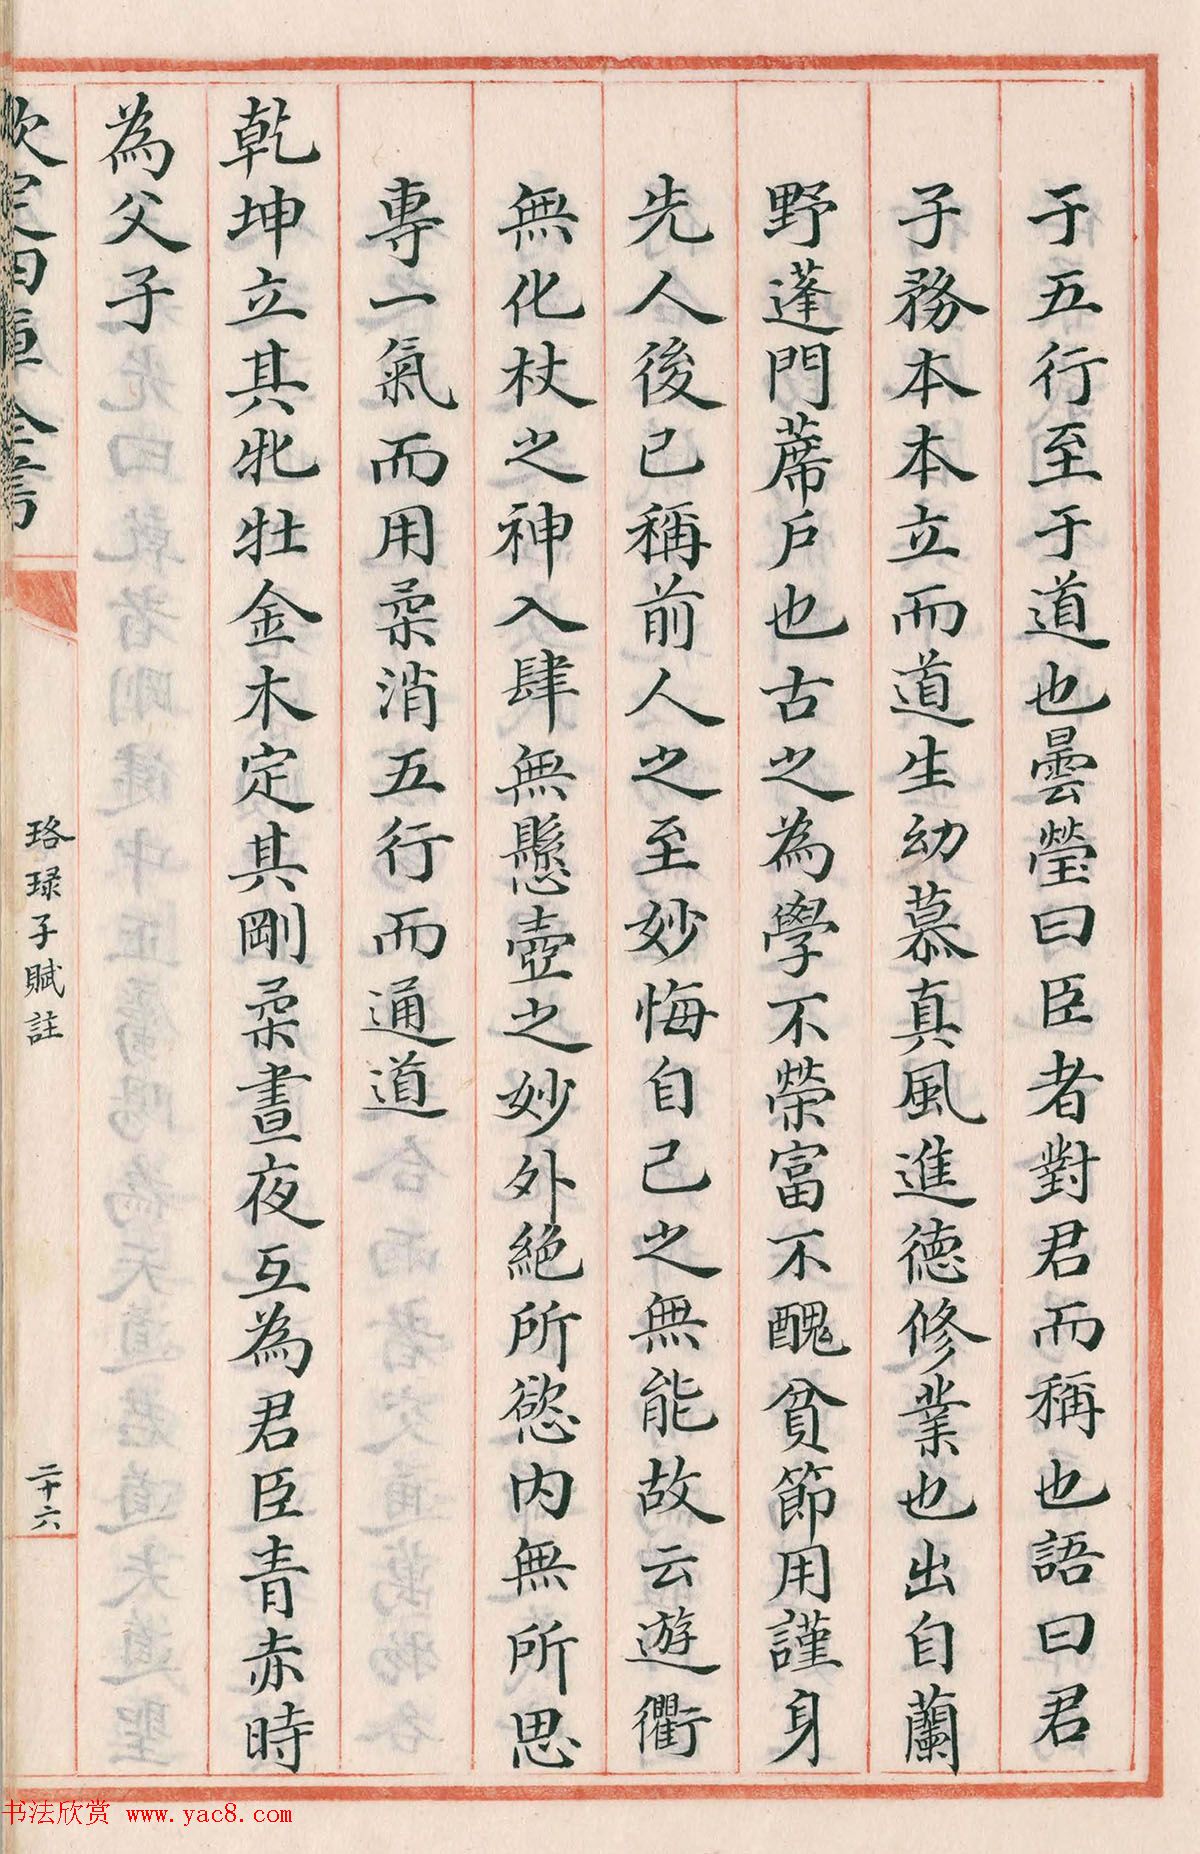 于五行至于道也曇瑩曰臣者對君而稱也語曰君
子務本本立而道生幼慕真風進德修業也出自蘭
野蓬門蓆戶也古之為學不榮富不醜貧節用謹身
先人後已稱前人之至妙悔自己之無能故云遊衢
無化杖之神入肆無懸壺之妙外絕所慾內無所思
專一氣而用柔消五行而通道
乾坤立其牝牡金木定其剛柔晝夜互為君臣青赤時
為父子
欽定四庫全書
珞琭子賦註
二十六
书法欣赏 www.yac8.com